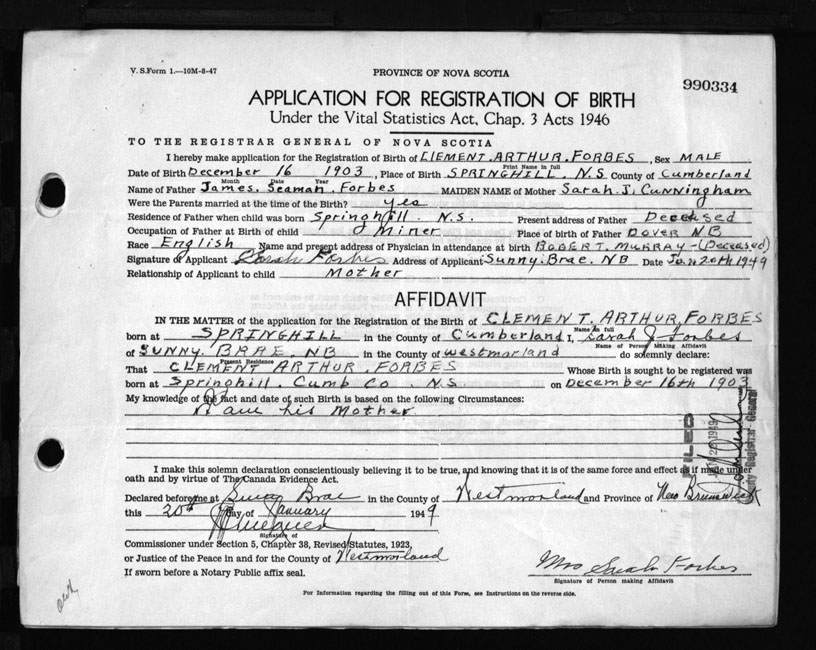 V. S. Form 1.—10M-8-47
PROVINCE OF NOVA SCOTIA
990334
APPLICATION FOR REGISTRATION OF BIRTH
Under the Vital Statistics Act, Chap. 3 Acts 1946
TO THE REGISTRAR GENERAL OF NOVA SCOTIA
I hereby make application for the Registration of Birth of CLEMENT. ARTHUR. FORBES, Sex MALE
Print Name in full
Date of Birth December 16 1903, Place of Birth SPRINGHILL. N.S County of Cumberland
Month Date Year
Name of Father James. Seaman. Forbes MAIDEN NAME of Mother Sarah. J. Cunningham
Were the Parents married at the time of the Birth? yes
Residence of Father when child was born Springhill. N.S. Present address of Father Deceased
Occupation of Father at Birth of child Miner Place of birth of Father Dover NB
Race English Name and present address of Physician in attendance at birth ROBERT. MURRAY - (Deceased)
Signature of Applicant Sarah Forbes Address of Applicant Sunny. Brae. NB Date Jan 20th 1949
Relationship of Applicant to child Mother
AFFIDAVIT
IN THE MATTER of the application for the Registration of the Birth of CLEMENT. ARTHUR. FORBES
Name in full
born at SPRINGHILL in the County of Cumberland I, Sarah J Forbes
Name of Person Making Affidavit
of SUNNY. BRAE. NB in the County of Westmorland do solemnly declare:
Present Residence
That CLEMENT ARTHUR. FORBES Whose Birth is sought to be registered was
born at Springhill. Cumb Co. N.S. on December 16th 1903
My knowledge of the fact and date of such Birth is based on the following Circumstances:
I am his Mother
FILED
Deputy Registrar - General
I make this solemn declaration conscientiously believing it to be true, and knowing that it is of the same force and effect as if made under
oath and by virtue of The Canada Evidence Act.
Declared before me at Sunny Brae in the County of Westmorland and Province of New Brunswick
this 20th day of January 1949
Signature of
Commissioner under Section 5, Chapter 38, Revised Statutes, 1923,
or Justice of the Peace in and for the County of Westmorland
If sworn before a Notary Public affix seal.
Mrs Sarah Forbes
Signature of Person making Affidavit
For Information regarding the filling out of this Form, see Instructions on the reverse side.